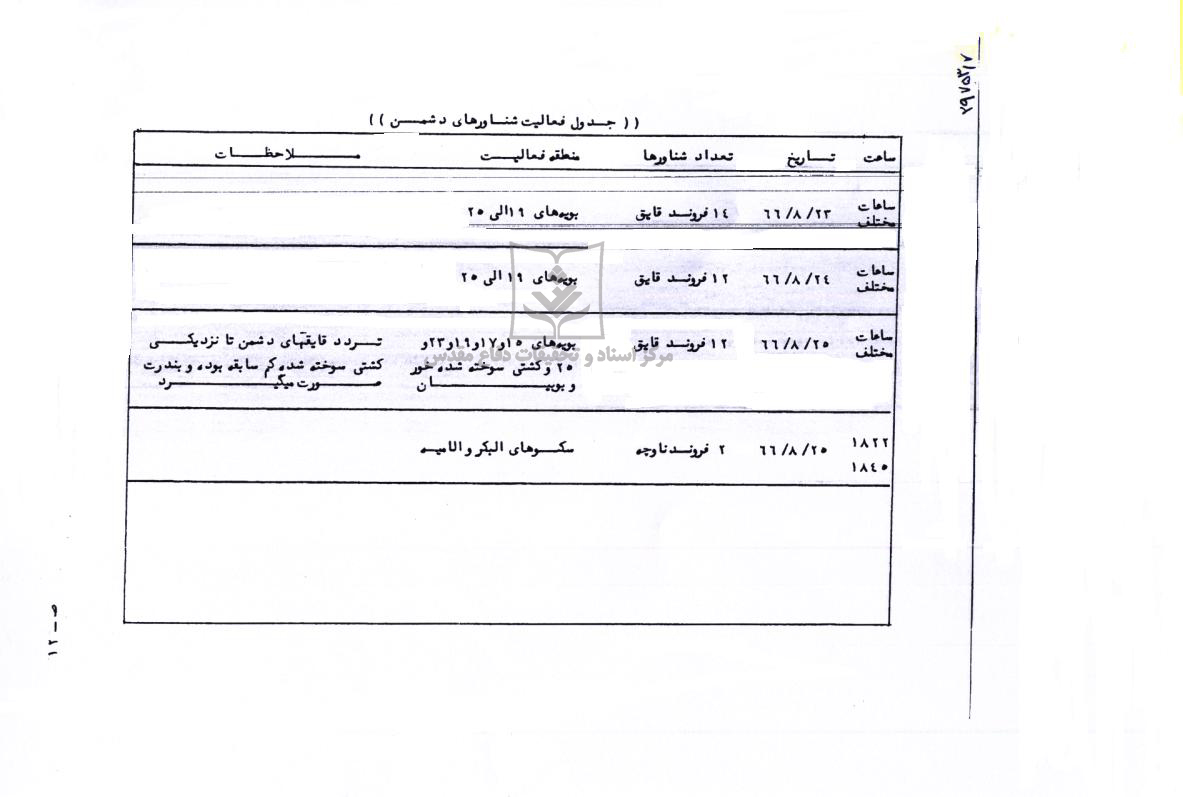 ۲۹۷۵۳/۷
(( جدول فعالیت شناورهای دشمن ))
ساعت تاریخ تعداد شناورها منطقه فعالیت ملاحظات
ساعات مختلف ۶۶/۸/۲۳ ۱۴ فروند قایق بویه‌های ۱۹ الی ۲۵
ساعات مختلف ۶۶/۸/۲۴ ۱۲ فروند قایق بویه‌های ۱۹ الی ۲۵
ساعات ۶۶/۸/۲۵ ۱۲ فروند قایق بویه‌های ۱۵و۱۷و۱۹و۲۳و تردد قایقهای دشمن تا نزدیکی
مختلف ۲۵ و کشتی سوخته شده خور کشتی سوخته شده کم سابقه بوده و بندرت
و بوبیان صورت میگیرد
مرکز اسناد و تحقیقات دفاع مقدس
۱۸۲۲ ۶۶/۸/۲۵ ۲ فروند ناوچه سکوهای البکر و الامیه
۱۸۴۵
ص-۱۲